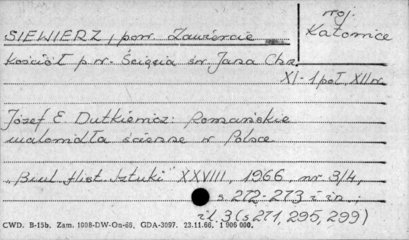 SIEWIERZ, pow. Zawiercie
woj. Katowice
Kościół p.w. Ścięcia św. Jana Chz.
XI - 1 poł. XII w.
Józef E. Dutkiewicz: Romańskie
malowidła ścienne w Polsce
„Biul. Hist. Sztuki" XXVIII, 1966 nr 3/4,
s. 272-273 i in.;
il. 3 (s 271, 295, 299)
CWD. B-15b. Zam. 1098-DW-On-65. GDA-3097. 23.11.66. 1 906 000.